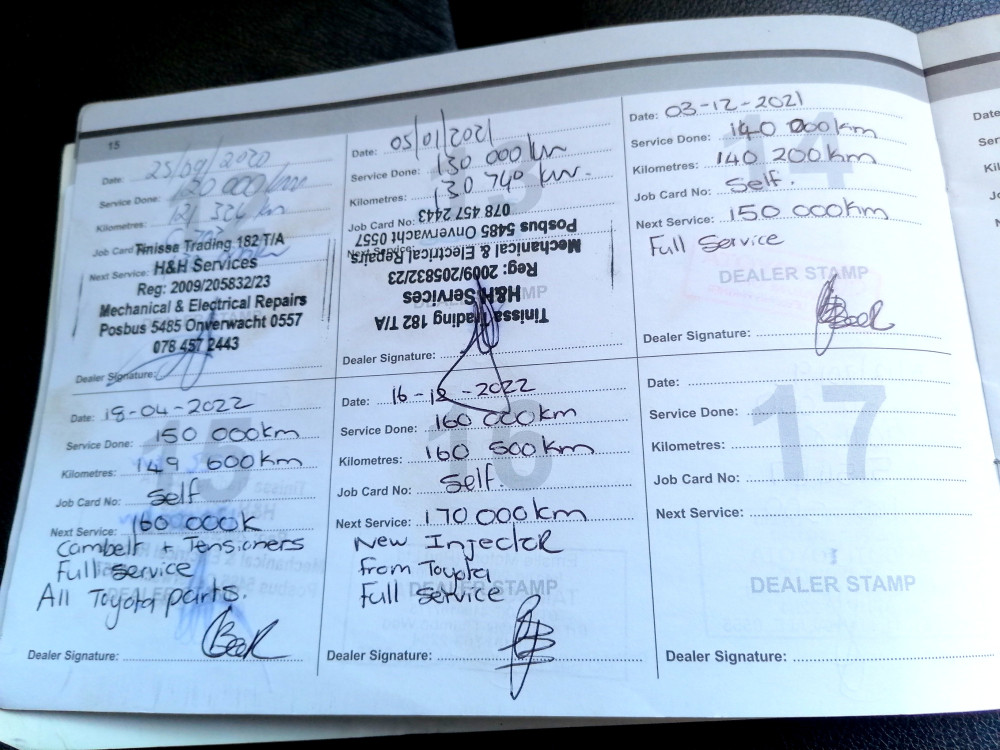 15
Date: 25/09/2020
Service Done: 120 000km
Kilometres: 121 324 km
Job Card
Next Service:
Tinissa Trading 182 T/A
H&H Services
Reg: 2009/205832/23
Mechanical & Electrical Repairs
Posbus 5485 Onverwacht 0557
078 457 2443
Dealer Signature:
Date: 05/10/2021
Service Done: 130 000 km
Kilometres: 130 740 km.
Job Card No:
Next Service:
Tinissa Trading 182 T/A
H&H Services
Reg: 2009/205832/23
Mechanical & Electrical Repairs
Posbus 5485 Onverwacht 0557
078 457 2443
Dealer Signature:
14
Date: 03-12-2021
Service Done: 140 000km
Kilometres: 140 200km
Job Card No: Self.
Next Service: 150 000km
Full Service
DEALER STAMP
Dealer Signature:
15
Date: 18-04-2022
Service Done: 150 000km
Kilometres: 149 600km
Job Card No: Self
Next Service: 160 000K
Cambelt + Tensioners
Full service
All Toyota parts.
Dealer Signature:
16
Date: 16-12-2022
Service Done: 160 000km
Kilometres: 160 500km
Job Card No: Self.
Next Service: 170 000km
New Injector
from Toyota
Full service
DEALER STAMP
Dealer Signature:
17
Date:
Service Done:
Kilometres:
Job Card No:
Next Service:
DEALER STAMP
Dealer Signature:
Date